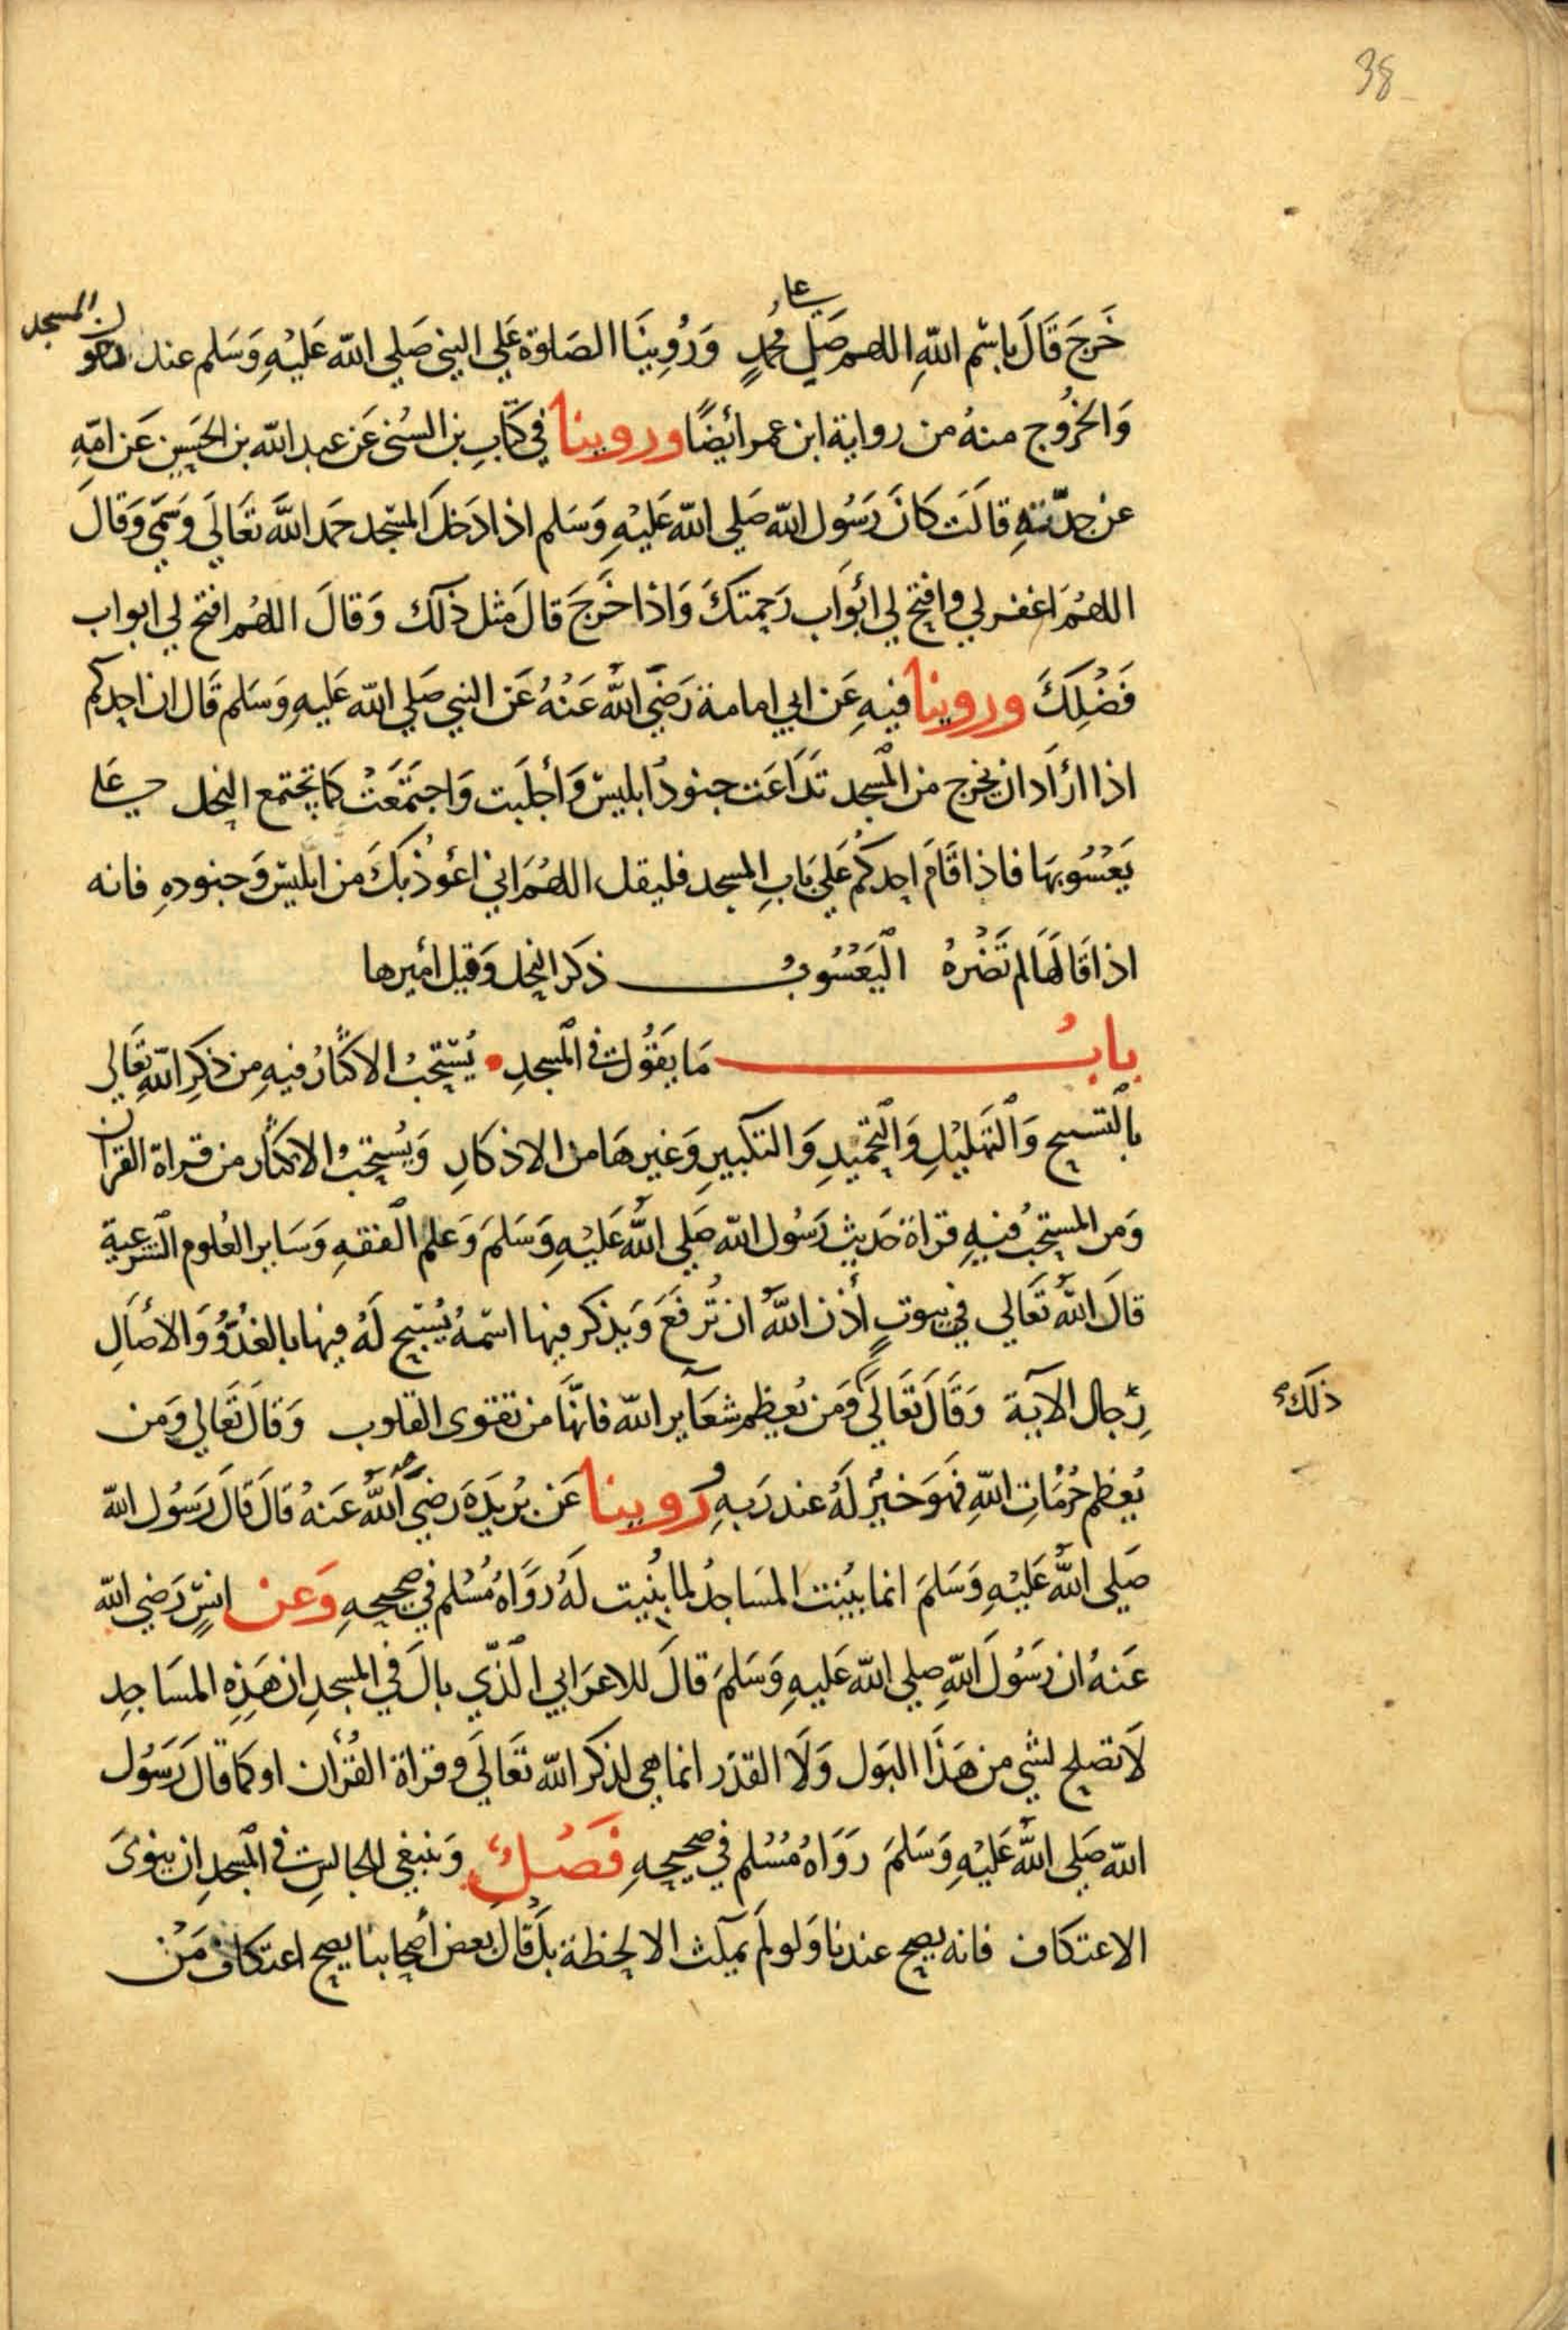 38
على
خَرَجَ قَالَ بِاسْمِ اللهِ اللهم صَلِّ مُحمدٍ وَرُوِينَا الصَلوة عَلي النبي صَلي الله عَليْهِ وَسَلم عند دخول المسجد
وَالخرُوج منهُ من رواية ابن عمر ائضًا وروينا في كتابِ بن السُني عَن عبد الله بن الحسَين عَن امّهِ
عن جدّتهِ قالَت كانَ رَسُول الله صَلي الله عَليْهِ وَسَلم اذا دَخلَ المسْجد حَمد اللهَ تعَالَي وَسَمّي وَقالَ
اللهُمَ اغفر لي وافتح لي ائبوَاب رَحمتكَ وَاذا خَرجَ قالَ مثل ذلك وَقالَ اللهُم افتح لي ابواب
فَضْلِكَ وروينا فيهِ عَن ابي امامة رَضيَ اللهُ عَنْهُ عَن النبي صَلي الله عَليهِ وَسَلم قَال ان احدكم
اذا ارَاد ان يخرج من المسجد تدَاعَت جنودُ ابليسَ وَأجلبَت وَاجتمَعَتْ كما تجتمع النحل على
يَعْسُوبهَا فاذا قَامَ احدكُم عَلي بَابِ المسجد فليقل اللهُمَ اني اعُوذ بكَ من ابليسَ وَجنودهِ فانه
اذا قَالهَا لم تَضُرهُ اليَعْسُوبُ ذكر النحل وَقيل أميرها
بابُ مَا يقُول في المسجدِ يُسْتحبُ الاكثارُ فيهِ من ذكرِ اللهِ تعَالي
بالتسبيح وَالتهليْلِ وَالتحميدِ وَالتكبيرِ وَغيرهَا من الاذكارِ وَيُستحبُ الاكثار من قراة القران
وَمن المستحبُ فيهِ قراة حَديث رَسُول الله صَلي اللهُ عَليْهِ وَسَلمَ وَعلم الفقهِ وَسَاير العُلوم الشرعية
قالَ اللهُ تعَالي في بيوتٍ أذن اللهُ ان تُرفعَ وَيذكر فيها اسْمهُ يُسَبّح لهُ فيها بالغدُوّ وَالأصَالِ
رِجال الآية وَقَالَ تعَالَي وَمن يُعظم شعَآير الله فانهَا من تقوى القلوب وَقالَ تعَالي وَمن
ذلك
يُعظم حُرُمَاتِ اللهِ فهوَ خيْرٌ لهُ عند رَبهِ رُوينا عَن بُريدَة رَضيَ اللهُ عَنهُ قالَ قالَ رَسُول الله
صَلي اللهُ عَليْهِ وَسَلمَ انما بُنيت المسَاجدُ لما بُنيت لهُ رَوَاهُ مُسْلم في صحيحهِ وَعن انسٍ رَضي الله
عَنهُ ان رَسُولَ اللهِ صلي الله عَليهِ وَسَلمَ قالَ للاعرَابي الذّي بالَ في المسجدِ ان هَذهِ المسَاجدِ
لاَ تصلح لشي من هَذا البَول وَلَا القذَر انما هي لذكر الله تعَالَي وقراة القُرأن او كمَا قالَ رَسُول
الله صَلي اللهُ عَليْهِ وَسَلمَ رَوَاهُ مُسْلم في صحيحهِ فَصْلٌ وَينبغي للجالسِ في المسجدِ ان ينوىَ
الاعتكاف فانه يصح عندنا وَلو لم يمكث الا لحظة بل قال بعض أصحابنا يصح اعتكاف مَنْ